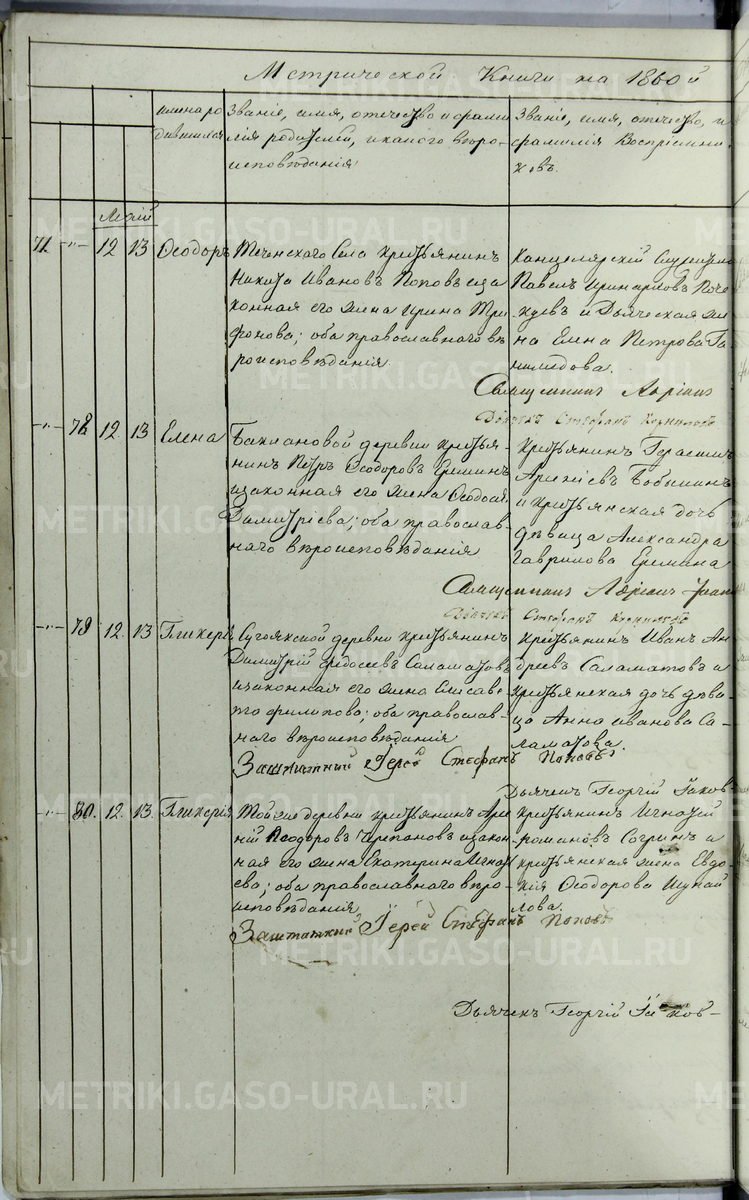 Метрической Книги на 1860й
имена родившихся
Званіе, имя, отечество и фамилія родителей, и какого вѣроисповѣданія
Званіе, имя, отечество, и фамилія Воспріемниковъ.
Май
71 -"- 12 13 Ѳеодоръ
Теченскаго Села крестьянинъ
Никита Ивановъ Поповъ и за
конная его жена Ирина Три
фонова; оба православнаго вѣ
роисповѣданія
Канцелярскій Служитель
Павелъ
и Дьяческая же
на Елена Петрова
Священникъ
Дьячекъ Стефанъ
-"- 78 12 13 Елена
Баклановой деревни крестья-
нинъ Петръ Ѳеодоровъ Ереминъ
и законная его жена Ѳеодосія
Димитріева; оба православ-
наго вѣроисповѣданія
крестьянинъ Герасимъ
Бобыкинъ
и крестьянская дочь
дѣвица Александра
Гаврилова Еремина
Священникъ
Дьячекъ Стефанъ
-"- 79 12. 13 Гликерія
Сугоякской деревни крестьянинъ
Димитрій Федосеевъ Саламатовъ
и законная его жена Елисаве-
та Филипова; оба православ-
наго вѣроисповѣданія
Заштатный Іерей Стефанъ Поповъ
крестьянинъ Иванъ Ан
дреевъ Саламатовъ и
крестьянская дочь дѣви-
ца Анна Иванова Са-
ламатова.
Дьячекъ Георгій Іаков-
-"- 80. 12. 13. Гликерія
Той же деревни крестьянинъ
Ѳеодоровъ Черепановъ и закон-
ная его жена Екатерина Игнать
ева; оба православнаго вѣро-
исповѣданія
Заштатный Іерей Стефанъ Поповъ
крестьянинъ Игнатій
Романовъ Согринъ и
крестьянская жена Евдо-
кія Ѳеодорова
лова.
Дьячекъ Георгій Іаков-
METRIKI.GASO-URAL.RU